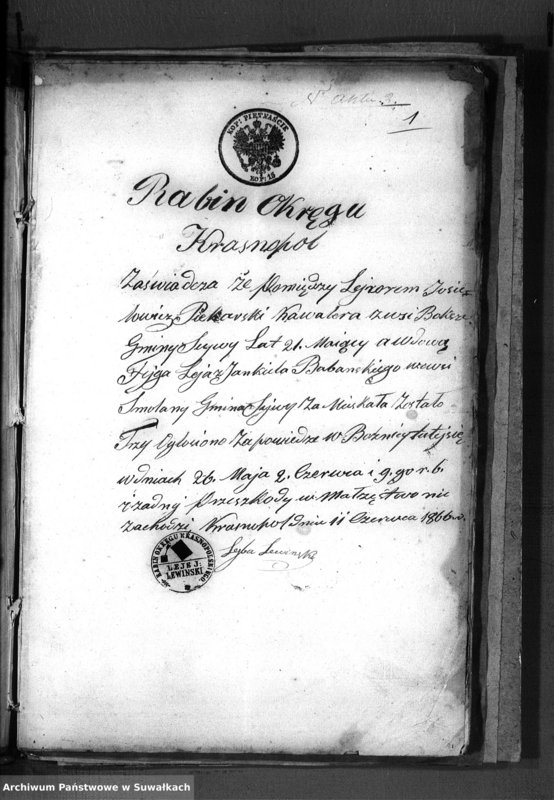 N Aktu 3.
1
KOP: PIĘTNAŚCIE
KOP: 15
Rabin Okręgu
Krasnopol
Zaświadcza że Pomiędzy Lejzorem Josie-
lowicz Piekarski Kawalera z wsi Boksze
Gminy Sejwy Lat 21. Maiący a wdową
Fejga Leja z Jankiela Babańskiego w wsi
Smolany Gmina Sejwy Za Mieskała Zostało
Trzy Ogłoszono Zapowiedze w Bożnicy tutejsię
w dniach 26. Maja 2. Czerwca i 9. go r. b.
i żadny Przeszkody w Małzęstwo nie
zachodzi Krasnopol dnia 11 Czerwca 1866 r.
Lejba Lewinski
RABIN OKRĘGU KRASNOPOLSKIEGO
LEJE J:
LEWINSKI
Archiwum Państwowe w Suwałkach